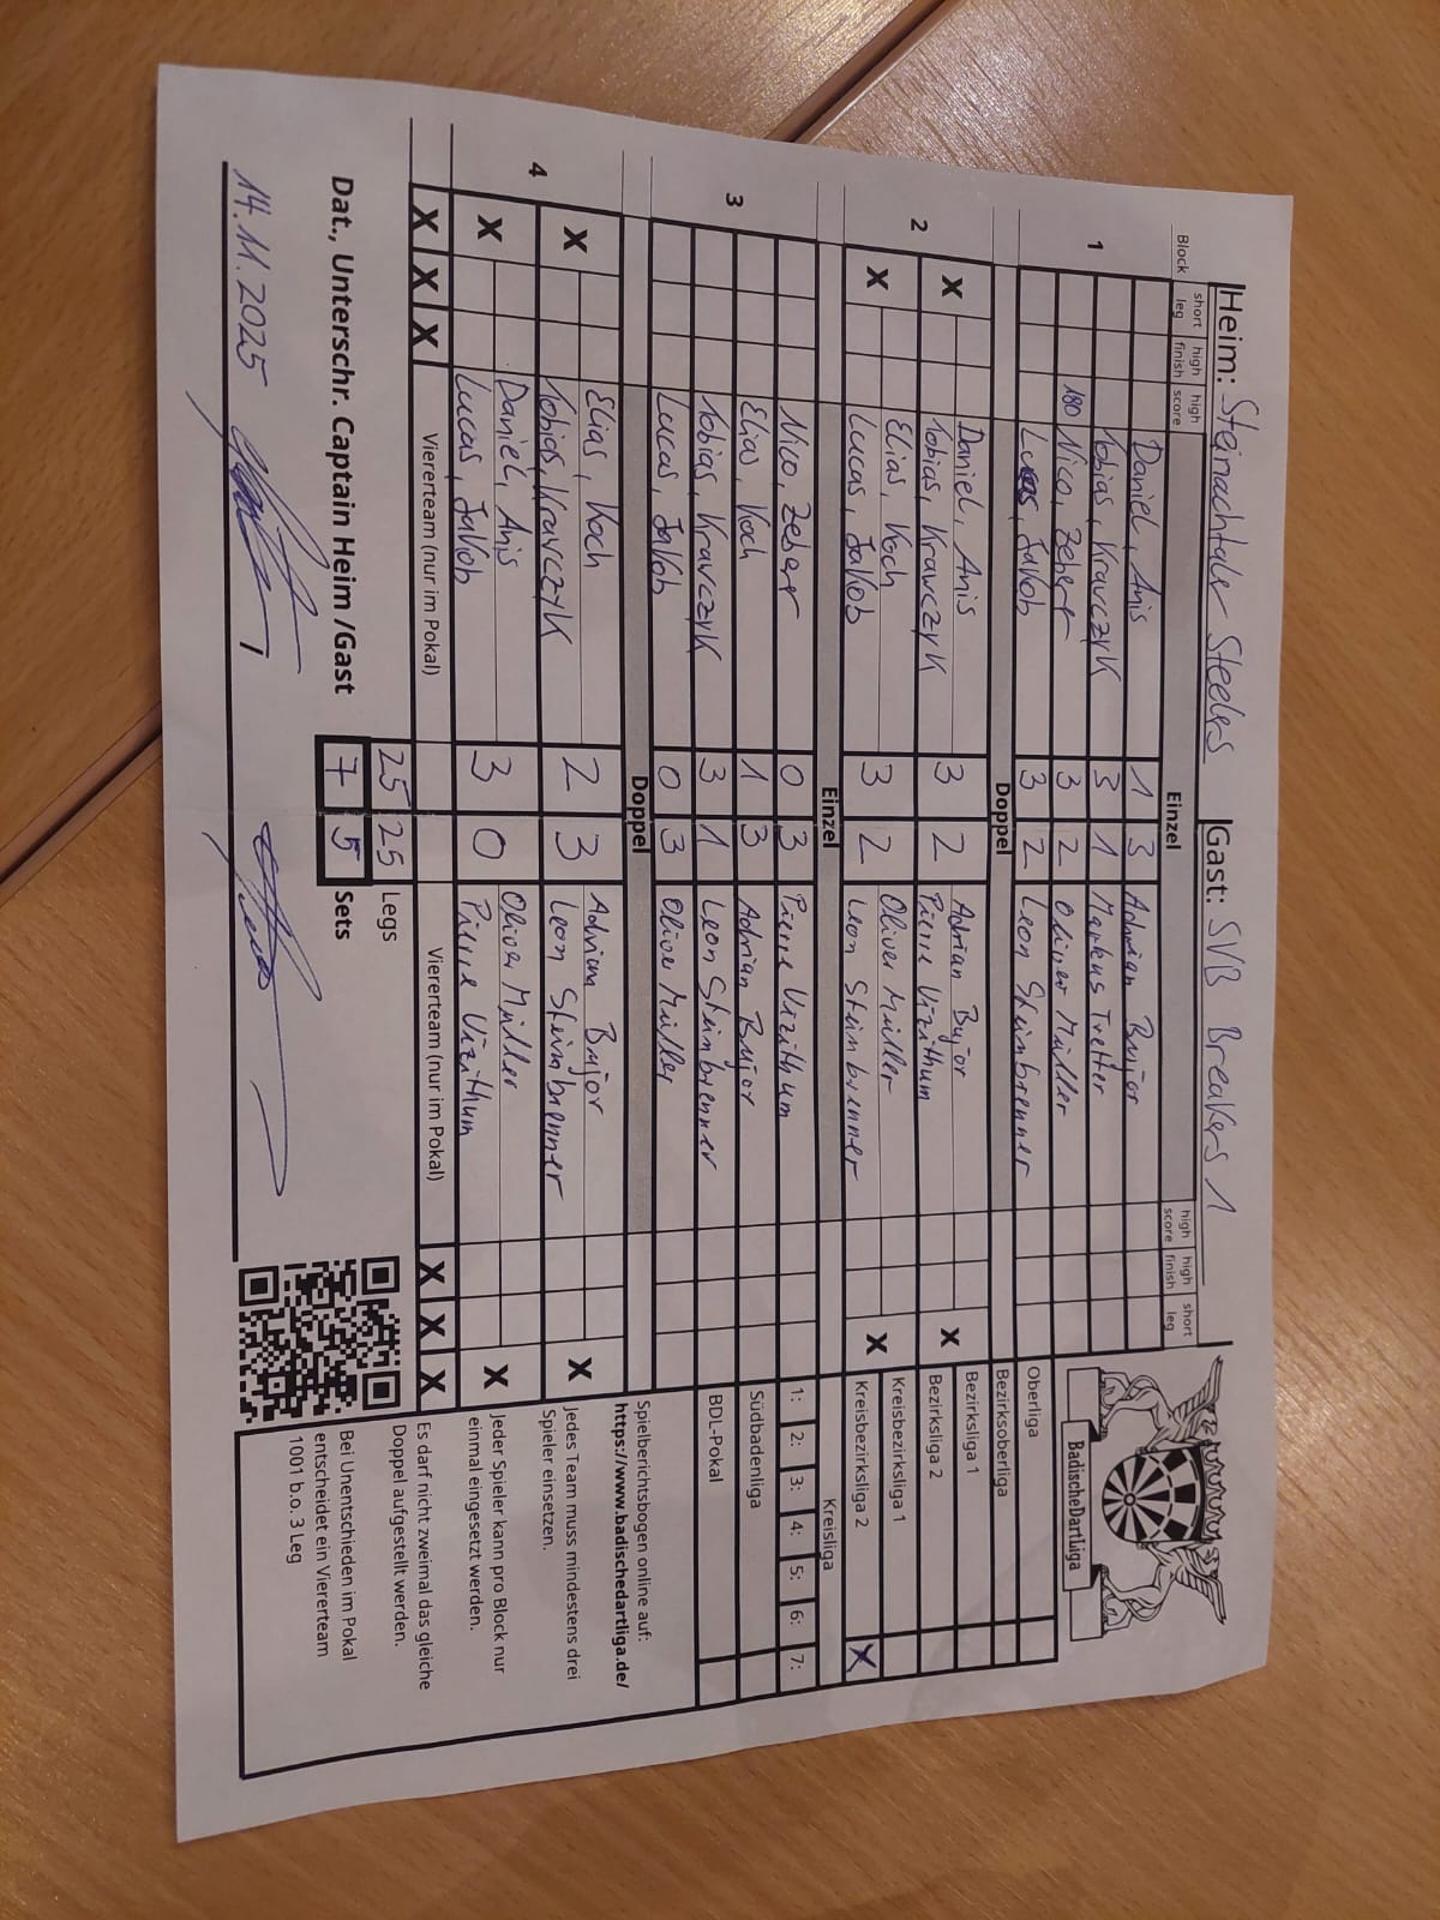 Heim: Steinachtaler Steelers Gast: SVB Breakers 1
Block short leg high finish high score Einzel high score high finish short leg
1 Daniel, Anis 1 3 Adrian Bujor
Tobias, Krawczyk 3 1 Markus Tretter
180 Nico, Zeber 3 2 Oliver Müller
Lucas, Jakob 3 2 Leon Steinbrenner
Doppel
2 X Daniel, Anis 3 2 Adrian Bujor X
Tobias, Krawczyk Pierre Vizithum
X Elias, Koch 3 2 Oliver Müller X
Lucas, Jakob Leon Steinbrenner
Einzel
3 Nico, Zeber 0 3 Pierre Vizithum
Elias, Koch 1 3 Adrian Bujor
Tobias, Krawczyk 3 1 Leon Steinbrenner
Lucas, Jakob 0 3 Oliver Müller
Doppel
4 X Elias, Koch 2 3 Adrian Bujor X
Tobias, Krawczyk Leon Steinbrenner
X Daniel, Anis 3 0 Oliver Müller X
Lucas, Jakob Pierre Vizithum
X X X Viererteam (nur im Pokal) Viererteam (nur im Pokal) X X X
25 25 Legs
Dat., Unterschr. Captain Heim /Gast 7 5 Sets
14.11.2025 /
BadischeDartLiga
Oberliga
Bezirksoberliga
Bezirksliga 1
Bezirksliga 2
Kreisbezirksliga 1
Kreisbezirksliga 2 X
Kreisliga
1: 2: 3: 4: 5: 6: 7:
Südbadenliga
BDL-Pokal
Spielberichtsbogen online auf:
https://www.badischedartliga.de/
Jedes Team muss mindestens drei
Spieler einsetzen.
Jeder Spieler kann pro Block nur
einmal eingesetzt werden.
Es darf nicht zweimal das gleiche
Doppel aufgestellt werden.
Bei Unentschieden im Pokal
entscheidet ein Viererteam
1001 b.o. 3 Leg